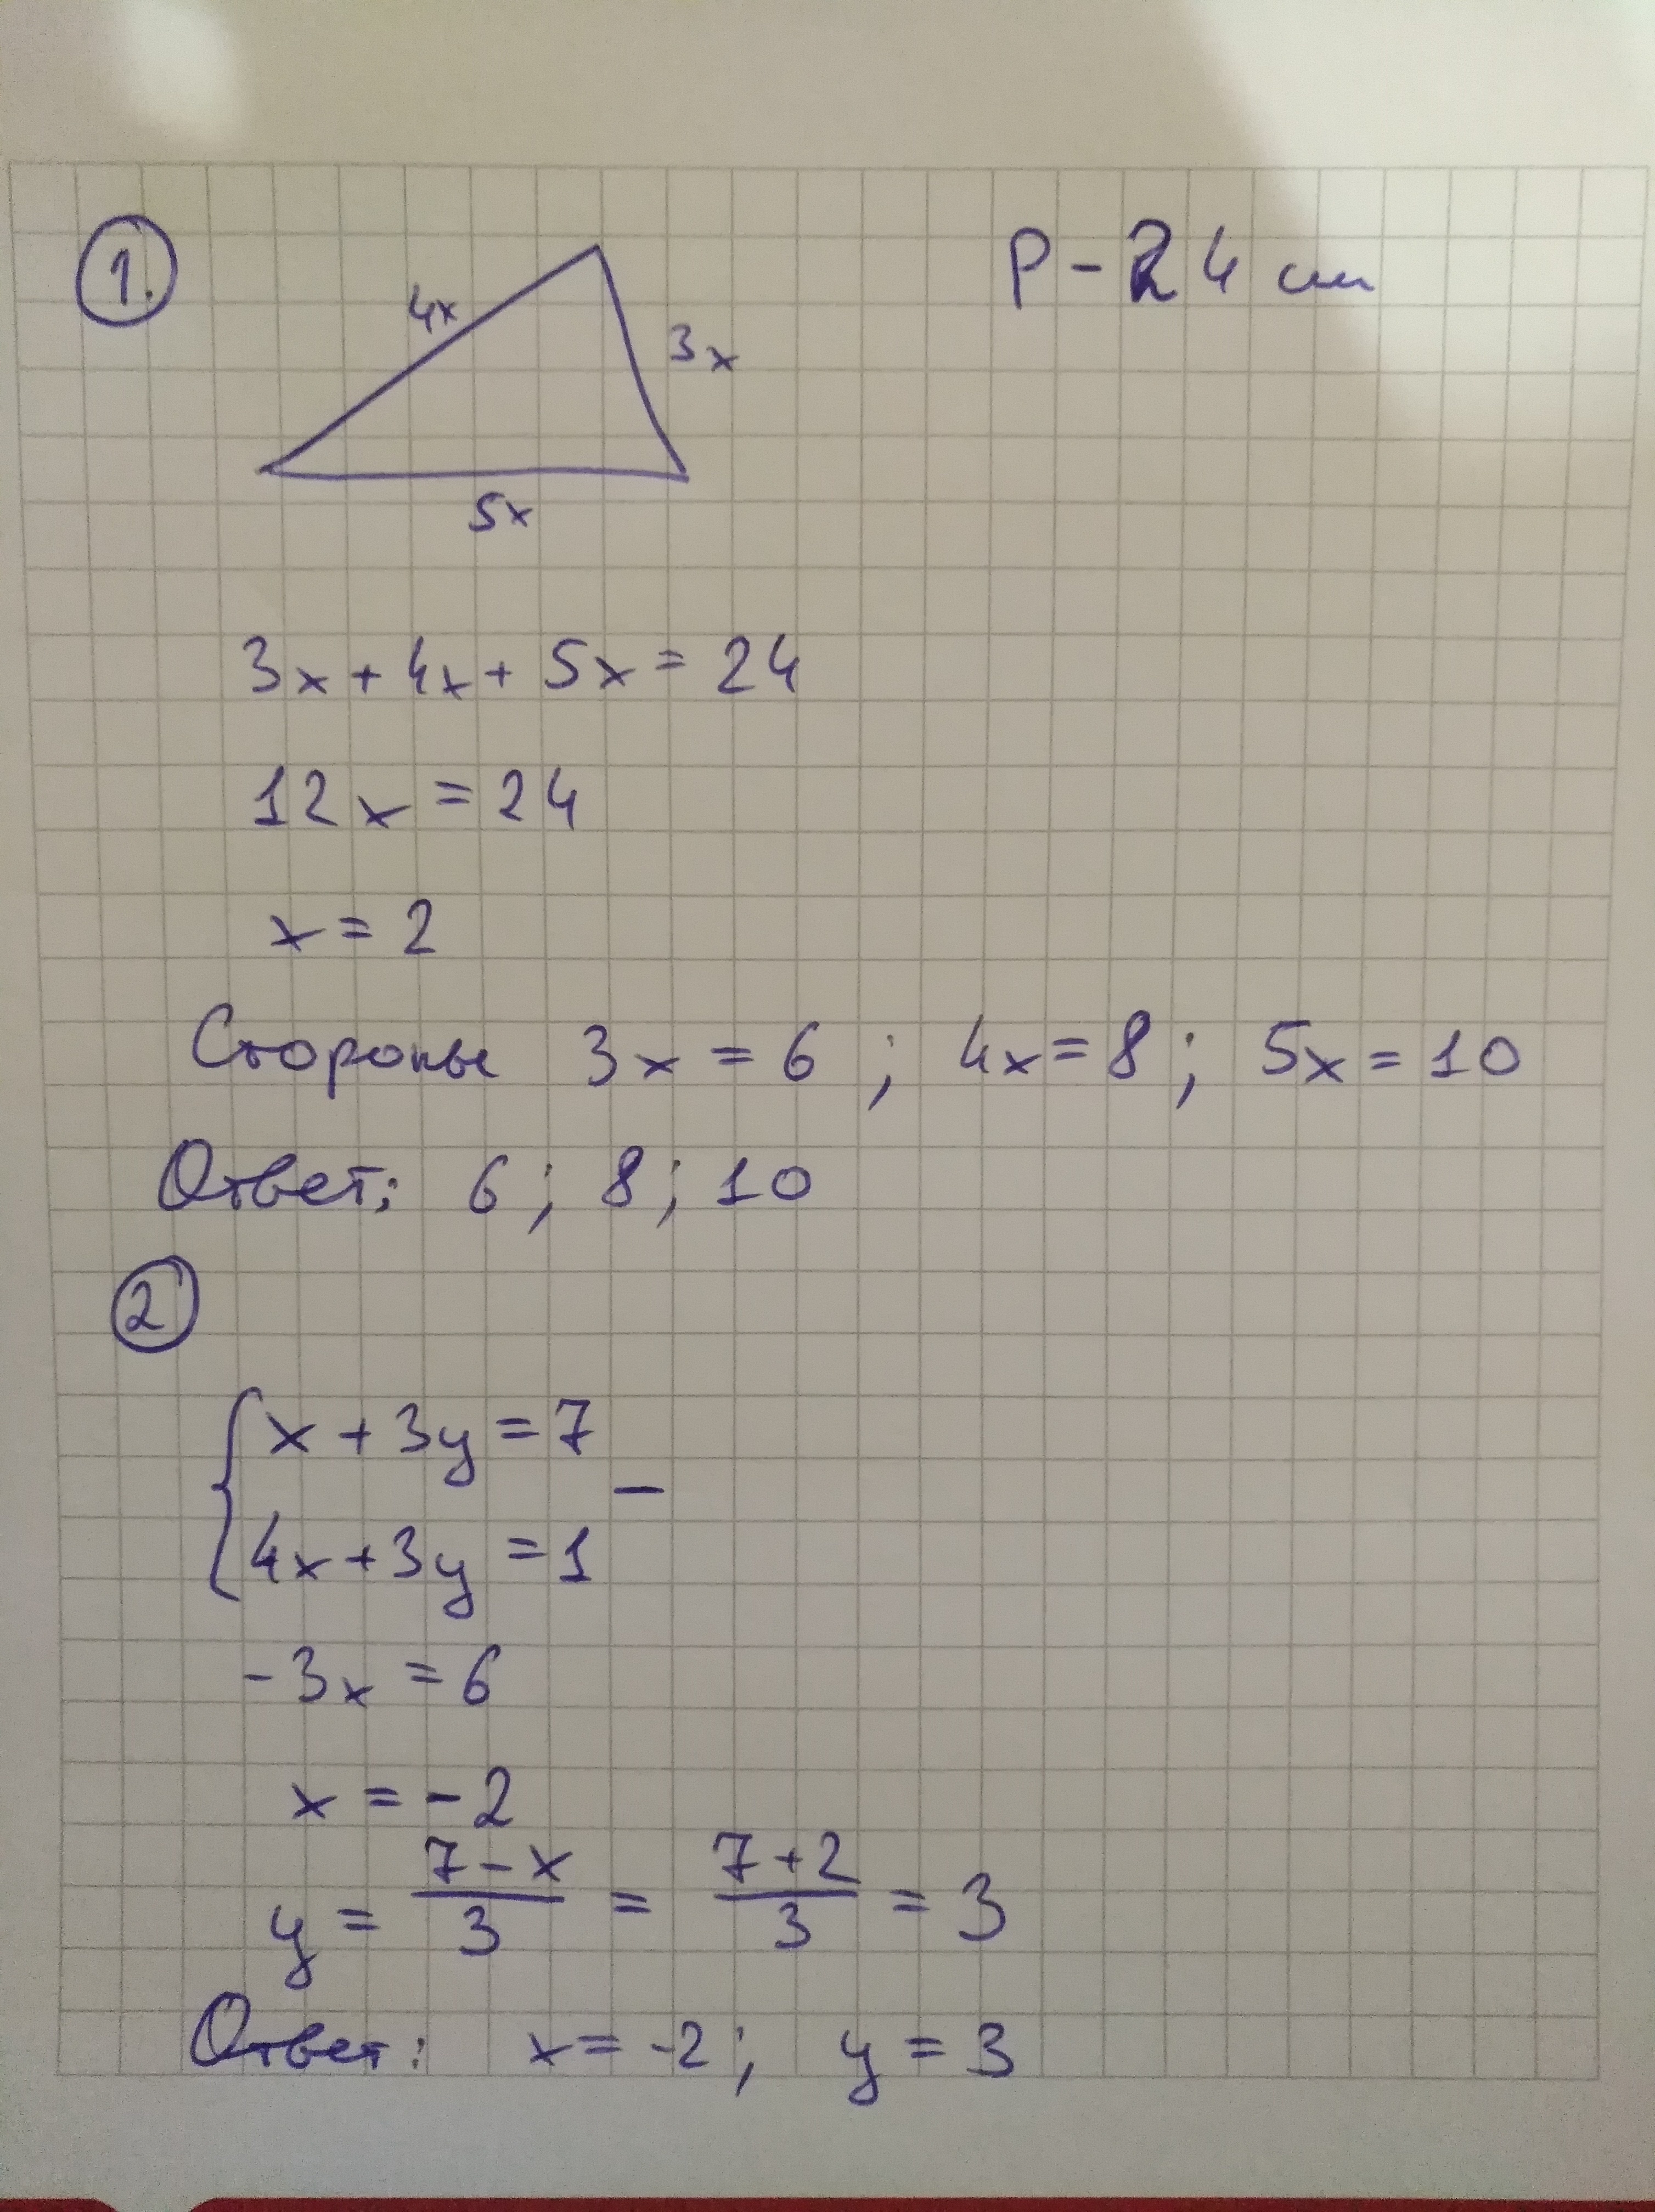 1.
P - 24 см
4x
3x
5x
3x + 4x + 5x = 24
12x = 24
x = 2
Стороны 3x = 6 ; 4x = 8 ; 5x = 10
Ответ: 6 ; 8 ; 10
2
{ x + 3y = 7
4x + 3y = 1 −
-3x = 6
x = -2
y = (7 - x)/3 = (7 + 2)/3 = 3
Ответ: x = -2 ; y = 3